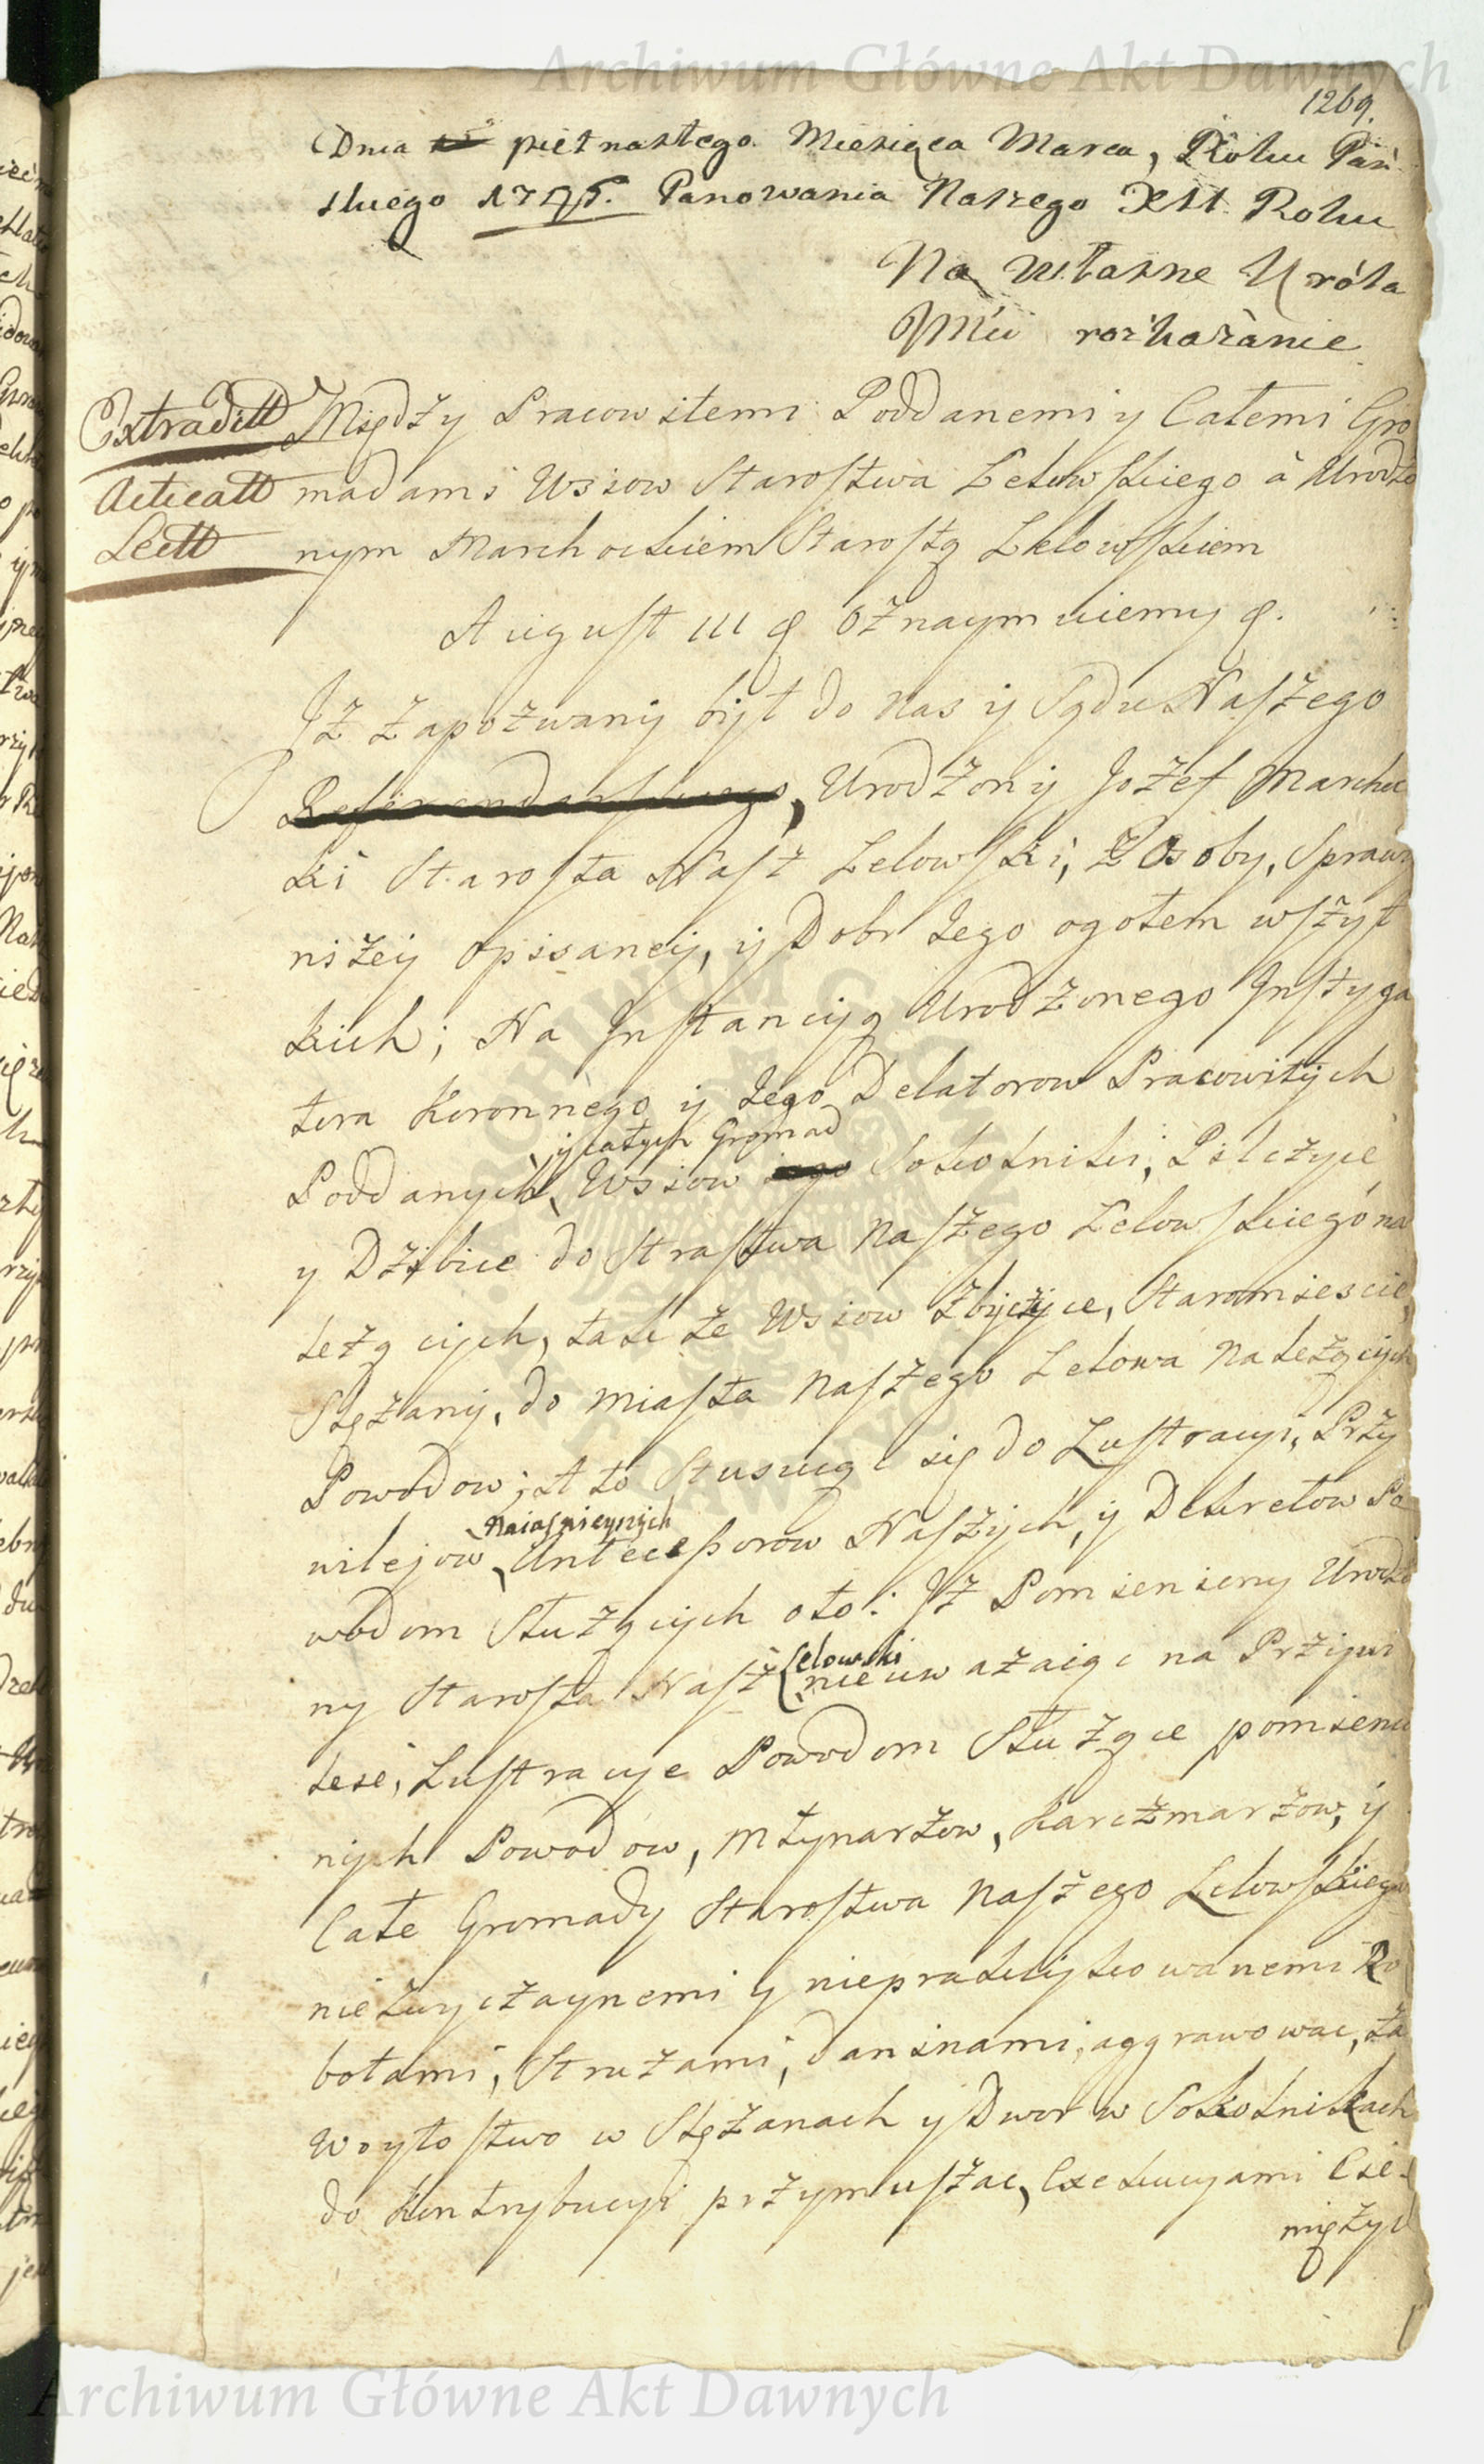 Archiwum Główne Akt Dawnych
1269.
Dnia piętnastego Miesiąca Marca, Roku Pań-
skiego Panowania Naszego XII. Roku
Na własne Króla
Mći rozkazanie
Extraditt Między Pracowitemi Poddanemi y Całemi Gro
Acticatt madami Wsiow Starostwa Lelowskiego à Urodzo
Lectt nym Marchockiem Starostą Lelowskiem
August III & Oznaymuiemy &.
Iż Zapozwany był do Nas y Sądu Naszego
Referendarskiego, Urodzony Jozef Marchoc
ki Starosta Nasz Lelowski, z Osoby, Sprawy
niżey opisaney, y Dobr Jego ogołem wszyt
kich; Na Instancyą Urodzonego Instyga
tora Koronnego y Jego Delatorow Pracowitych
y całych Gromad
Poddanych, Wsiow Sokolniki, Pilczyce
y Dzibice do Strastwa Naszego Lelowskiego na
leżących, tak że Wsiow Zbyczyce, Staromieście,
Slęzany, do Miasta Naszego Lelowa Należących
Powodow; A to Stosuiąc się do Lustracyi, Przy
Naiaśnieyszych
wilejow, Antecessorow Naszych, y Dekretow Po
wodom Służących oto: Iż Pomieniony Urodzo
Lelowski
ny Starosta Nasz nieuważaiąc na Przywi
leie, Lustracye Powodom Służące pomienio
nych Powodow, Młynarzow, Karczmarzow, y
Całe Gromady Starostwa Naszego Lelowskiego
niezwyczaynemi y niepraktykowanemi Ro
botami, Strużami, daninami, aggrawować, Za
Woytostwo w Slęzanach y Dwor w Sokolnikach
do Kontrybucyi przymuszac, Exekucyami Cie-
miężyć
Archiwum Główne Akt Dawnych